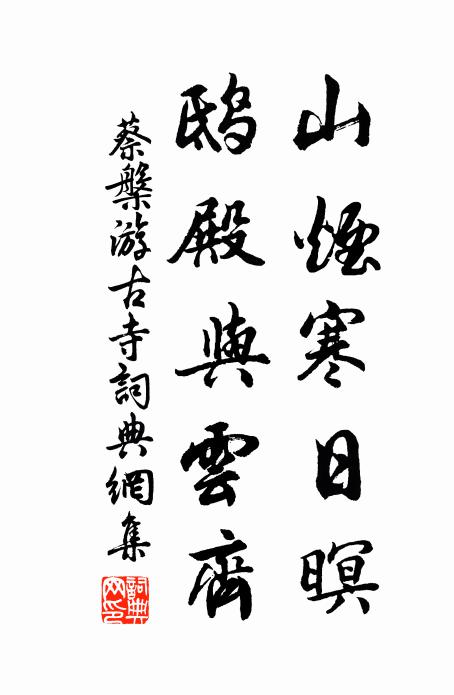 山煙寒日暝
鴟殿與雲齊
蔡槃游古寺詞典網集
詞典網印